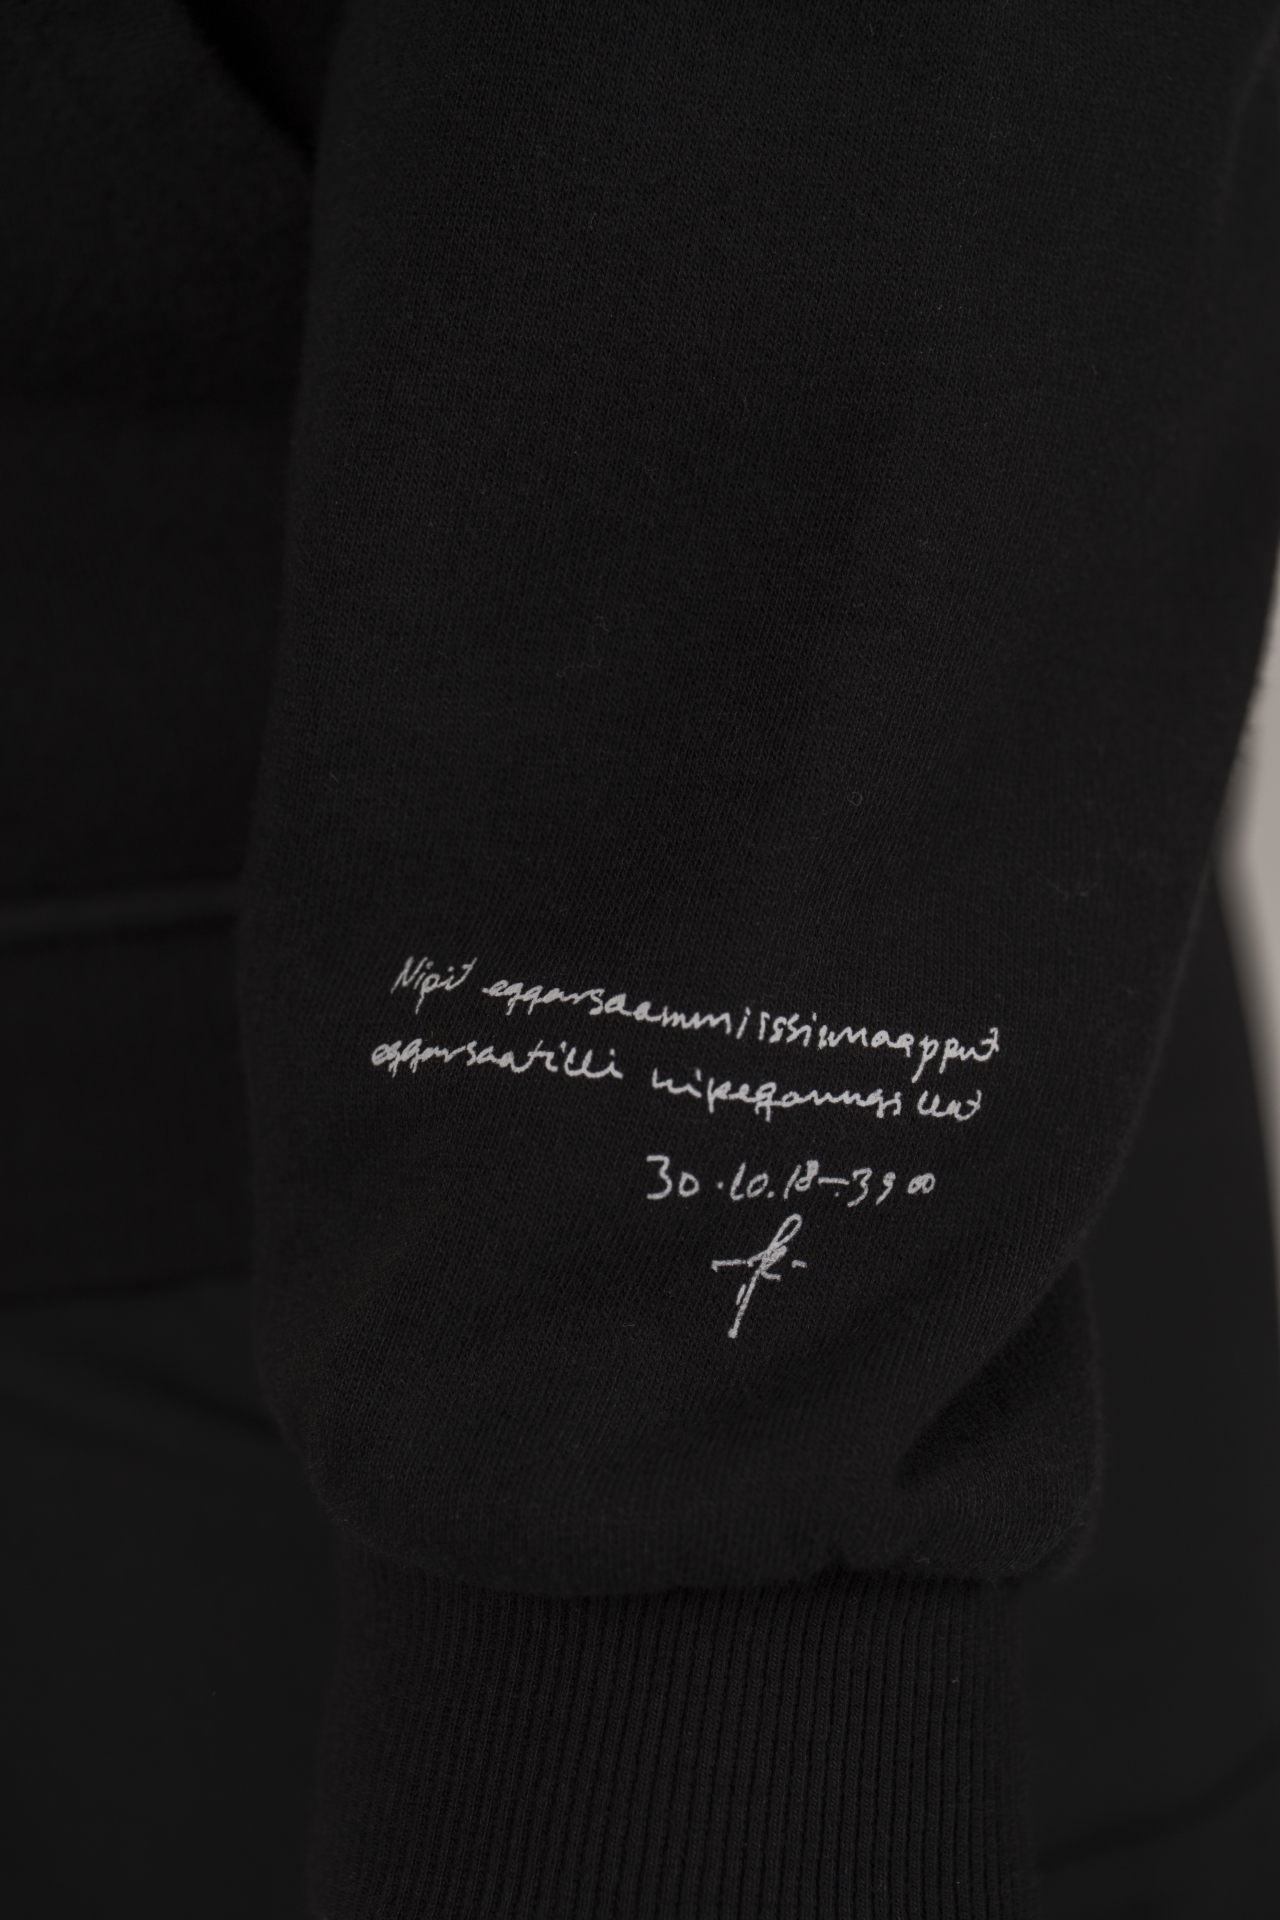 Nipit eqqarsaammiissimaapput
eqqarsaatilli nipeqanngillat
30.10.18-3900